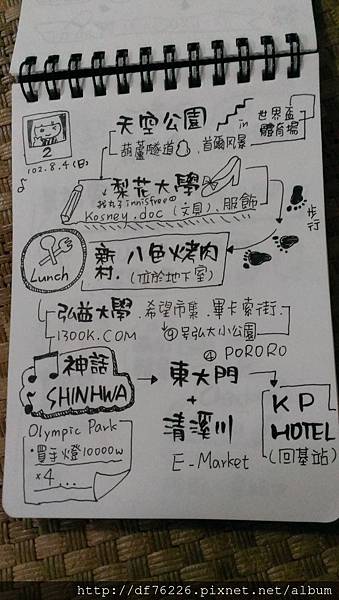 2
102.8.4(日)
天空公園
in
世界盃
體育場
葫蘆隧道
首爾風景
梨花大學
找丸子innisfree
Kosney.doc(文具)、服飾
步行
Lunch
新村.
八色烤肉
(位於地下室)
弘益大學.希望市集.畢卡索街.
1300K.COM
弘大小公園
④ PORORO
神話
SHINHWA
東大門
+
清溪川
E-Market
KP
HOTEL
(回基站)
Olympic Park
買手燈10000w
×4...
http://df76226.pixnet.net/album